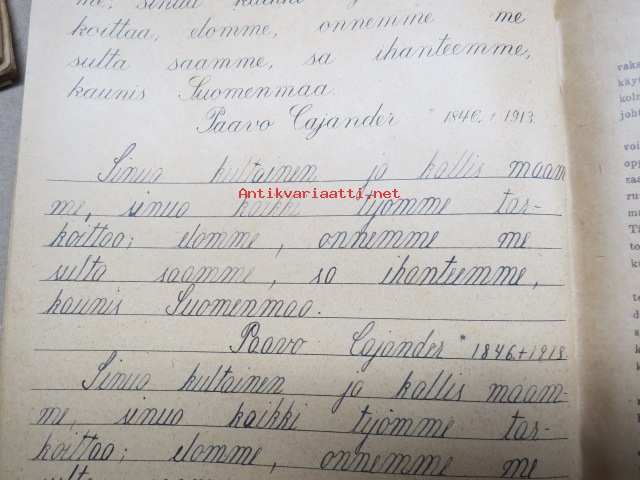 me, sinua kaikki
koittaa, elomme, onnemme me
sulta saamme, sa ihanteemme,
kaunis Suomenmaa.
Paavo Cajander * 1846. † 1913.
Sinua kultainen ja kallis maam-
me, sinua kaikki työmme tar-
koittaa; elomme, onnemme me
sulta saamme, sa ihanteemme,
kaunis Suomenmaa.
Paavo Cajander * 1846 + 1913
Sinua kultainen ja kallis maam-
me, sinua kaikki työmme tar-
koittaa; elomme, onnemme me
sulta
Antikvariaatti.net
raka
käyt
koln
joht
voi
opp
saa
ru
m
Tä
to
ku
te
d
s
k
k